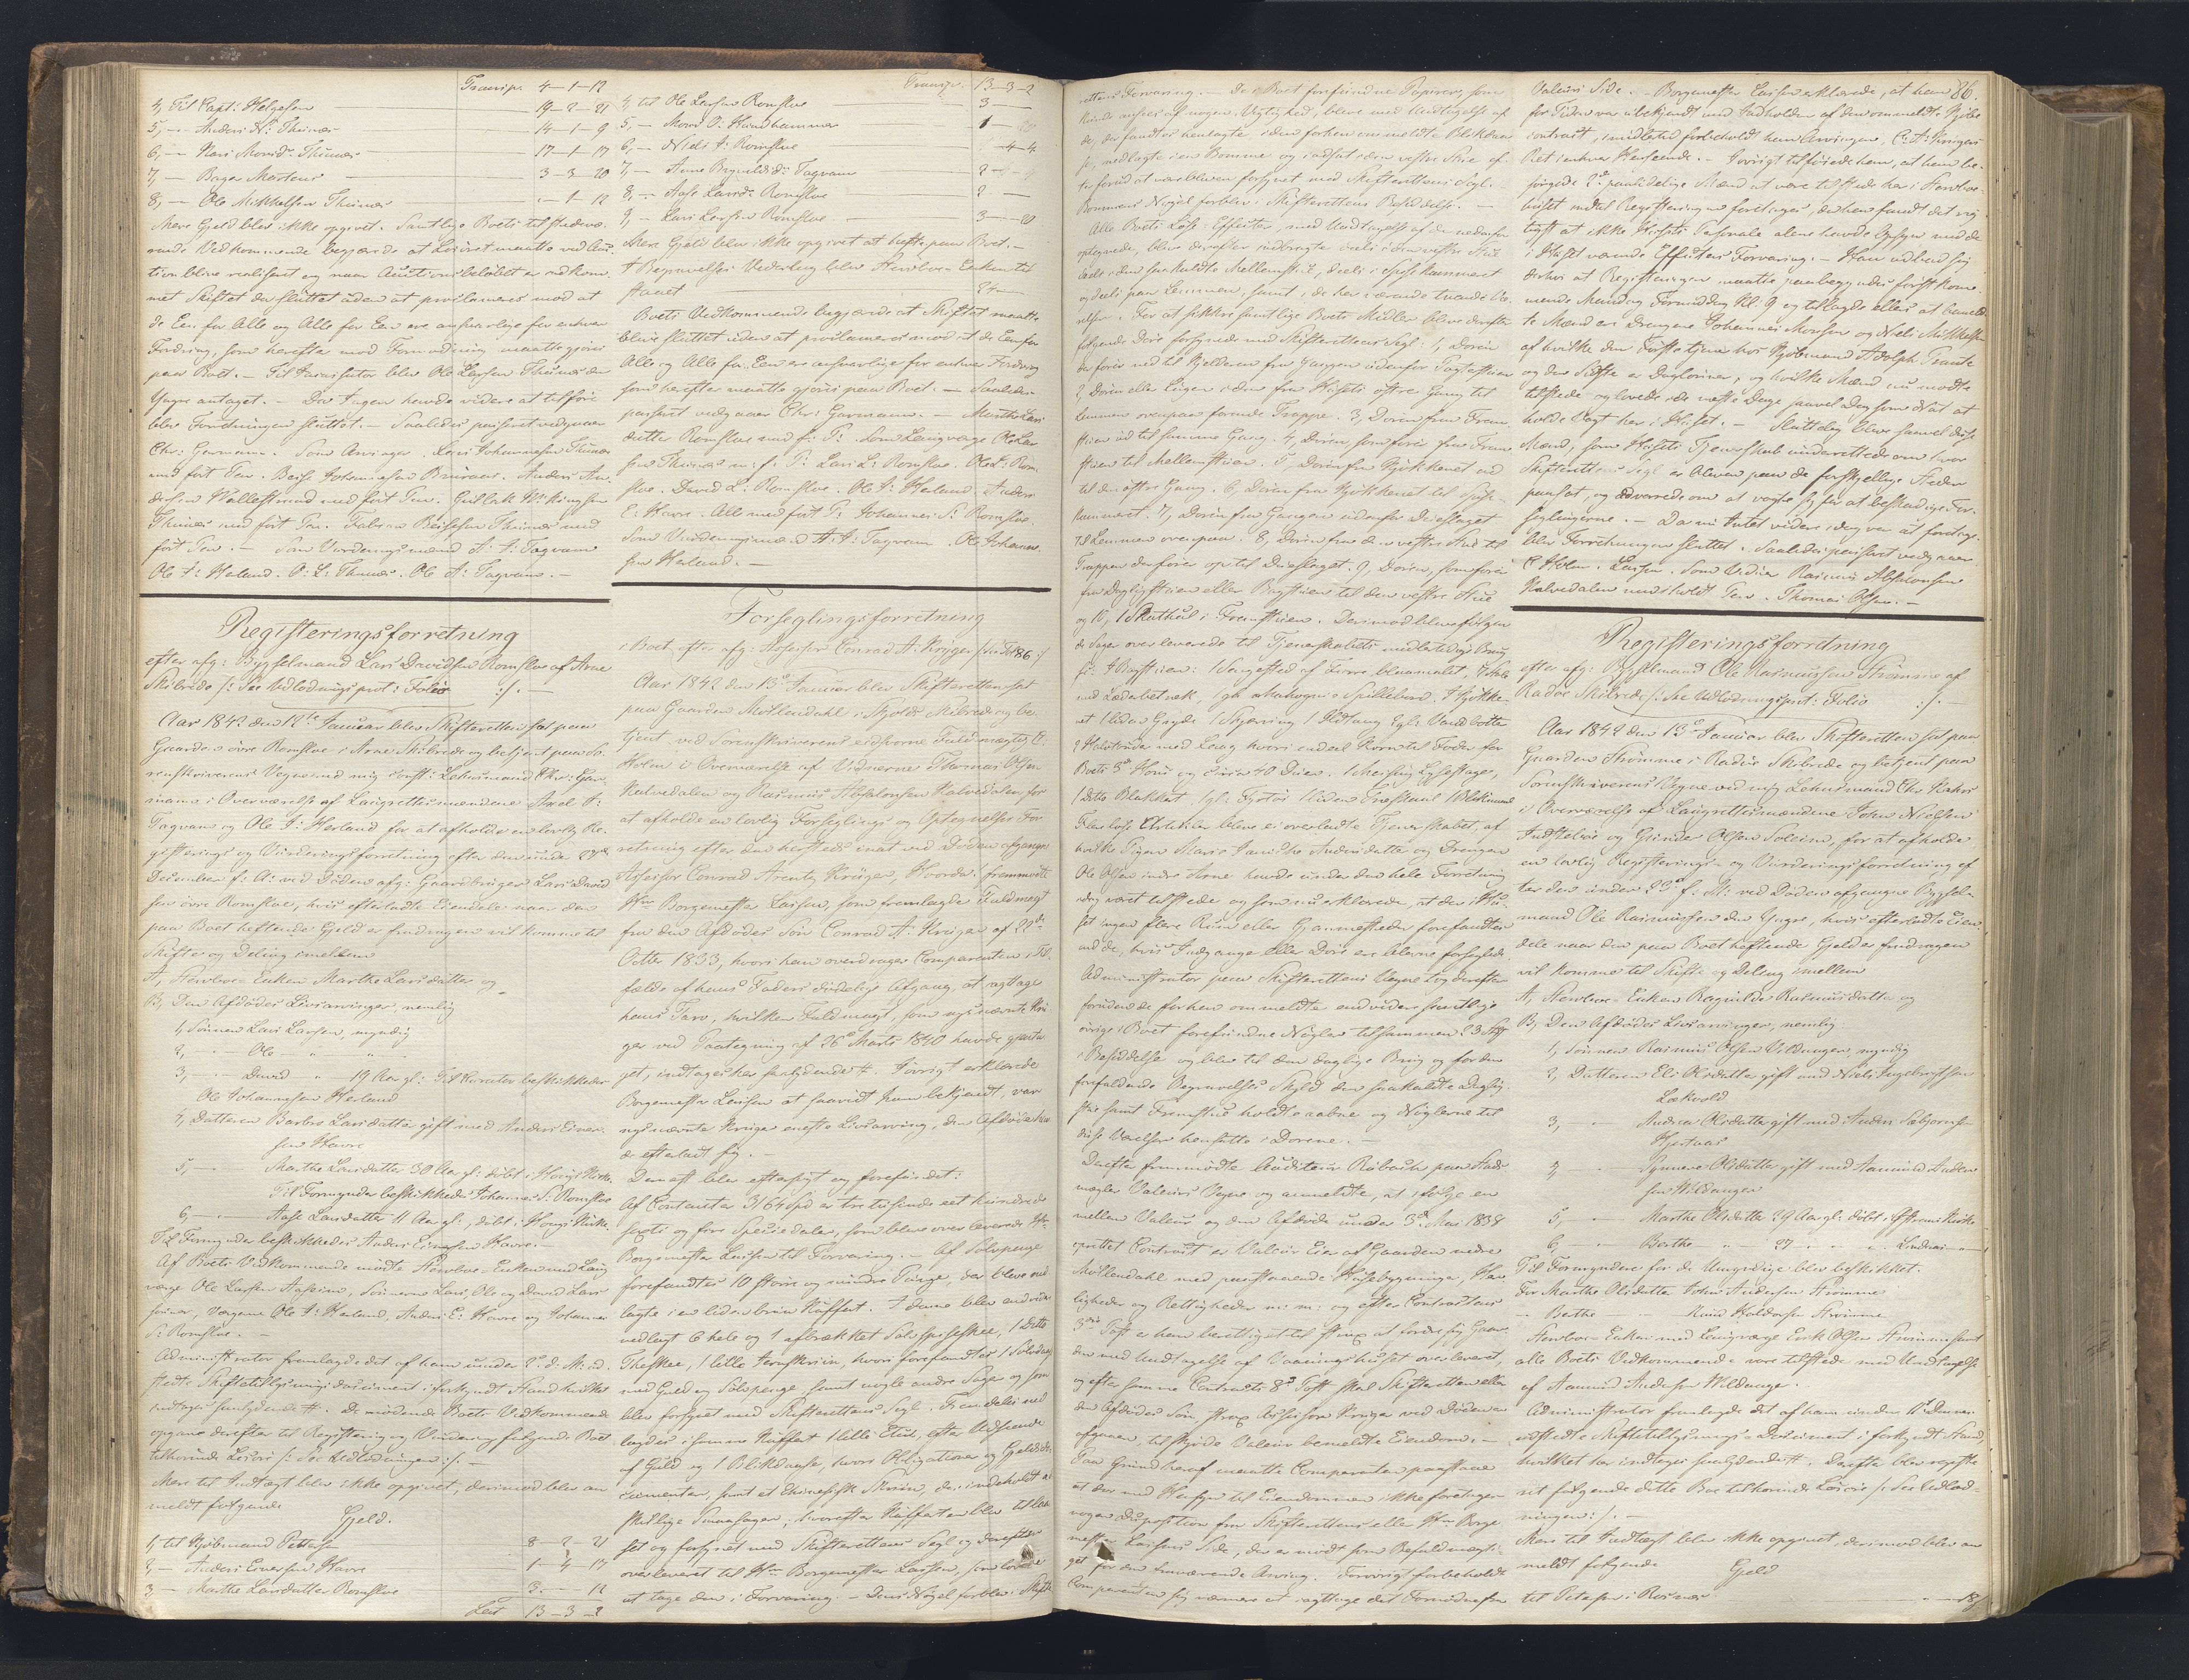 Transp. 4-1-12
4, Til Capt: Helgesen 19-2-21
5, — Anders N: Thunæs 14-1-9
6, — Kari Monsd: Thunæs 17-1-17
7, — Bager Martens 3-3-20
8, — Ole Mikkelsen Thunæs -1-12
Mere Gjeld blev ikke opgivet. Samtlige Boets tilstedevæ-
rende Vedkommende begjærede at Løsøret maatte ved Auc-
tion blive realiseret og naar Auctionsbeløbet er indkom-
met Skiftet da sluttet uden at proclameres mod at
de Een for Alle og Alle for Een ere ansvarlige for enhver
Fordring, som herefter mod Formodning maatte gjøres
paa Boet. — Til Incassator blev Ole Larsen Thunæs den
Yngre antaget. — Da Ingen havde videre at tilføre
blev Forretningen sluttet. — Saaledes passeret vedgaaer
Chr: Garmann. Som Arvinger. Lars Johannesen Thunæs
med ført Pen. Anders An-
dersen med ført Pen.
Thunæs med ført Pen. Fabian Thunæs med
ført Pen. — Som Vurderingsmænd A: A: Tagvam
Ole I: Herland. O: L: Thunæs. Ole A: Tagvam. —
Registeringsforretning
efter afg: Bygselmand Lars Davidsen Romsloe af Arne
Skibrede /: See Udlodningsprot: Folio :/. —
Aar 1842 den 12te Januar blev Skifteretten sat paa
Gaarden øvre Romsloe i Arne Skibrede og betjent paa So-
renskriverens Vegne ved mig const: Lehnsmand Chr: Gar-
mann i Overværelse af Laugrettesmændene Axel A:
Tagvam og Ole I: Herland for at afholde en lovlig Re-
gisterings og Vurderingsforretning efter den under 27de
December f: A: ved Døden afg: Gaardbruger Lars David-
sen øvre Romsloe, hvis efterladte Eiendele naar den
paa Boet heftende Gjeld er fradragen vil komme til
Skifte og Deling imellem
A, Stervboe-Enken Marthe Larsdatter og
B, Den Afdødes Livsarvinger, nemlig
1, Sønnen Lars Larsen, myndig
2, — Ole — " "
3, — David — " 19 Aar gl: Til Curator beskikkedes
Ole Johannesen Herland
4, Datteren Barbro Larsdatter gift med Anders Einer-
sen Havre
5, — Marthe Larsdatter 30 Aar gl: døbt i Hougs Kirke.
Til Formynder beskikkedes Johannes S: Romsloe
6, — Aase Larsdatter 11 Aar gl:, døbt i Hougs Kirke.
Til Formynder beskikkedes Anders Einersen Havre. —
Af Boets Vedkommende mødte Stervboe-Enken med Laug-
værge Ole Larsen Aaseim, Sønnerne Lars, Ole og David Lars-
sønner, Værgerne Ole I: Herland, Anders E: Havre og Johannes
S: Romsloe. —
Administrator fremlagde det af ham under 2: d: M: ud-
stedte Skiftetillysnings document i forkyndt Stand hvilket
indtages saalydende #. De mødende Boets Vedkommende
opgave derefter til Registering og Vurdering følgende Boet
tilhørende Løsøre /: See Udlodningen :/. —
Mere til Indtægt blev ikke opgivet, derimod blev an-
meldt følgende
Gjeld.
1, til Kjøbmand Pettersen 8-2-21
2, — Anders Einersen Havre 1-4-17
3 — Marthe Larsdatter Romsloe 3-"-12
Lat 13-3-2
Transp. 13-3-2
4, til Ole Larsen Romsloe 3—
5, — Mons O: Haundhammer 1—
6, — Niels A: Romsloe -4-4
7, — Anne Brynildsd: Tagvam 2-
8, — Aase Larsd: Romsloe 2—
9, — Lars Larsen Romsloe 3-
Mere Gjeld blev ikke opgivet at hæfte paa Boet. —
I Begravelses Vederlag blev Stervboe-Enken til-
staaet 24—
Boets Vedkommende begjærede at Skiftet maatte
blive sluttet uden at proclameres mod at de Een for
Alle og Alle for Een er ansvarlige for enhver Fordring
som herefter maatte gjøres paa Boet. — Saaledes
passeret vedgaaer Chr: Garmann. — Marthe Lars-
datter Romsloe med f: P: Som Laugværge Ole Lar-
sen Thunæs m: f: P: Lars L: Romsloe. Ole L: Rom-
sloe. David L: Romsloe. Ole I: Herland. Anders
E: Havre. Alle med ført P: Johannes S: Romsloe.
Som Vurderingsmænd A: A: Tagvam. Ole Johanne-
sen Herland. —
Forseglingsforretning
i Boet efter afg: Assessor Conrad A: Krøger /: See 186 :/
Aar 1842 den 13de Januar blev Skifteretten sat
paa Gaarden Møllendahl i Skjolds Skibrede og be-
tjent ved Sorenskriverens eidsvorne Fuldmægtig C:
Holm i Overværelse af Vidnerne Thomas Olsen
Kalvedalen og Rasmus Absalonsen Kalvedalen, for
at afholde en lovlig Forseglings og Optegnelses For-
retning efter den hersteds inat ved Døden afgangne
Assessor Conrad Arentz Krøger, Hvorda: fremmødte
Hr. Borgemester Larssen, som fremlagde Fuldmagt
fra den Afdødes Søn Conrad A: Krøger af 22de
Octbr 1833, hvori han overdrager Comparenten i Til-
fælde af hans Faders dødelige Afgang, at iagttage
hans Tarv, hvilken Fuldmagt, som nysnævnte Krø-
ger ved Paategning af 26de Marts 1840 havde gjenta-
get, indtages her saalydende #. Iøvrigt erklærede
Borgemester Larssen at saavidt ham bekjendt, var
nysnævnte Krøger eneste Livsarving, den Afdøde hav-
de efterladt sig. —
Dernæst blev eftersøgt og forefundet:
Af Contanter 3164 Spd er tre tusinde eet hundrede
sexti og fire Speciedaler, som blev overleverede Hr.
Borgemester Larssen til Forvaring. — Af Sølvpenge
forefandtes 10 større og mindre Punge, der bleve ned-
lagte i en liden bruun Kuffert. I denne blev endvidere
nedlagt 6 hele og 1 afbrækket Sølvspiseskee, 1 Ditto
Theskee, 1 lille Jernskriin, hvori forefandtes 1 Sølvdaase
med Guld og Sølvpenge samt nogle andre Sager og som
blev forsynet med Skifterettens Segl. Fremdeles ned-
lagdes i samme Kuffert 1 lille Etui, efter Udseende
af Guld og 1 Blikdaase, hvori Obligationer og Gjelds do-
cumenter, samt et Chinesisk Skriin, der indeholdt ad-
skillige Smaasager, hvorefter Kufferten blev tillaa-
set og forsynet med Skifterettens Segl og derefter
overleveret til Hr. Borgemester Larssen, som lovede
at tage den i Forvaring. — Dens Nøgel forblev i Skifte-
rettens Forvaring. — De i Boet forefundne Papirer, som
kunde ansees af nogen Vigtighed, bleve med Undtagelse af
de, der fandtes henlagte i den forhen ommeldte Blikdaa-
se, nedlagte i en Bomme og indsat i den vestre Stue ef-
ter forud at være bleven forsynet med Skifterettens Segl.
Bommens Nøgel forblev i Skifterettens Besiddelse. —
Alle Boets Løse Effecter, med Undtagelse af de nedenfor
optegnede, bleve derefter indbragte deels i den vestre Stue
deels i den saakaldte Mellemstue, deels i Spisekammeret
og deels paa Lemmen, samt i de her værende tvende Væ-
relser. For at sikkre samtlige Boets Midler bleve derefter
følgende Døre forsynede med Skifterettens Segl: 1, Døren
der fører ned til Kjelderen fra Gangen udenfor Dagligstuen
2, Døren eller Lugen i den fra Husets østre Gang til
Lemmen ovenpaa førende Trappe. 3, Døren fra Frem-
stuen ud til samme Gang. 4, Døren, som fører fra Frem-
stuen til Mellemstuen. 5, Døren fra Kjøkkenet ud
til den østre Gang. 6, Døren fra Kjøkkenet til Spise-
kammeret. 7, Døren fra Gangen udenfor Drieslaget
til Lemmen ovenpaa. 8, Døren fra den vestre Stue til
Trappen der fører op til Drieslaget. 9, Døren, som fører
fra Dagligstuen eller Bugstuen til den vestre Stue
og 10, 1 Skathul i Fremstuen. Derimod bleve følgen-
de Sager overleverede til Tjenerskabets midlertidige Brug
Sc: I Bogstuen: 1 Sengested af Furre blaamalet, 7 Stole
med Læderbetræk, 1 gl: Mahogni Spillebord. I Kjøkke-
net 1 liden Gryde 1 Skjæring 1 Ildtang 2 gl: Vandbøtter
2 Halvtønder med Laag hvori endeel Korn til Foder for
Boets 3de Høns og circa 40 Duer. 1 Messing Lysestage,
1 ditto Blakkert 1 gl: Fyrtøi 1 liden Træskaal 1 Blikkrukke
Flere løse Artikler bleve ei overladte Tjenerskabet, af
hvilke Pigen Marie Janicke Andersdatter og Drengen
Ole Olsen indre Arne havde under den hele Forretning
idag været tilstede og som nu erklærede, at der i Hu-
set ingen flere Rum eller Gjemmesteder forefandtes
end de, hvis Indgange eller Døre ere blevne forseglede.
Administrator paa Skifterettens Vegne tog derefter
foruden de forhen ommeldte endvidere samtlige
øvrige i Boet forefundne Nøgler tilsammen 23 Stkr
i Besiddelse og blev til den daglige Brug og for den
forefaldende Begravelses Skyld den saakaldte Daglig-
stue samt Fremstue holdt aabne og Nøglerne til
disse Værelser hensatte i Dørene. —
Derefter fremmødte Auditeur Rubach paa Stads-
mægler Valeurs Vegne og anmeldte, at ifølge en
mellem Valeur og den Afdøde under 3de Mai 1838
oprettet Contract er Valeur Eier af Gaarden nedre
Møllendahl med paastaaende Huusebygninger, Her-
ligheder og Rettigheder m: m: og efter Contractens
3die Post er han berettiget til strax at fordre sig Gaar-
den med Undtagelse af Vaaningshuset overleveret,
og efter samme Contracts 8de Post skal Skifteretten eller
den Afdødes Søn strax Assessor Krøger ved Døden er
afgaaen, tilskjøde Valeur bemeldte Eiendom. —
Paa Grund heraf maatte Comparenten paastaae
at der med Hensyn til Eiendommen ikke foretages
nogen Disposition fra Skifterettens eller Hr. Borge-
mester Larssens Side, der er mødt som Befuldmægti-
get for den fraværende Arving. Forøvrigt forbeholdt
Comparenten sig nærmere at iagttage det Fornødne fra
86.
Valeurs Side. — Borgemester Larssen erklærede, at han
for Tiden var ubekjendt med Indholdet af den ommeldte Kjøbe
contract, imidlertid forbeholdt han Arvingen, C: A: Krøgers
Ret i enhver Henseende. — Iøvrigt tilføiede han, at han be-
sørgede 2de paalidelige Mænd at være tilstede her i Stervboe-
huset indtil Registeringen foretages, da han fandt det rig-
tigst at ikke Husets Personale alene havde Opsyn med de
i Huset værende Effecters Forvaring. — Han udbad sig
derhos at Registeringen maatte paabegyndes førstkom-
mende Mandag Formiddag Kl: 9 og tillagde ellers at bemeld-
te Mænd ere Drengene Johannes Monsen og Niels Mikkelsen
af hvilke den Første tjener hos Kjøbmand Adolph Prante
og den Sidste er Dagleiner, og hvilke Mænd nu mødte
tilstede og lovede i de næste Dage saavel Dag som Nat at
holde Vagt her i Huset. — Sluttelig bleve saavel disse
Mænd, som Husets Tjenerskab underrettede om hvor
Skifterettens Segl er bleven paa de forskjellige Steder
paasat, og advarede om at vogte sig for at beskadige For-
seglingerne. — Da nu Intet videre idag var at foretage
blev Forretningen sluttet. Saaledes passeret vedgaaer
C Holm. Larssen. Som Vidner Rasmus Absalonsen
Kalvedalen med iholdt Pen. Thomas Olsen. —
Registeringsforretning
efter afg: Bygselmand Ole Rasmussen Strømme af
Radøe Skibrede /: See Udlodningsprot: Folio :/. —
Aar 1842 den 13de Januar blev Skifteretten sat paa
Gaarden Strømme i Radøe Skibrede og betjent paa
Sorenskriverens Vegne ved mig Lehnsmand Chr Kahrs
i Overværelse af Laugrettesmændene John Nielsen
og Gunder Olsen Soleim, for at afholde
en lovlig Registerings- og Vurderingsforretning ef-
ter den under 23de f: M: ved Døden afgangne Bygsel-
mand Ole Rasmussen den Yngre, hvis efterladte Eien-
dele naar den paa Boet heftende Gjeld er fradragen
vil komme til Skifte og Deling imellem
A, Stervboe-Enken Ragnilde Rasmusdatter og
B, Den Afdødes Livsarvinger, nemlig
1, Sønnen Rasmus Olsen Vildanger, myndig
2, Datteren Eli Olsdatter gift med Niels Ingebrigtsen
3, — Andrea Olsdatter gift med Anders
4, — Synneve Olsdatter gift med Aamund Ander-
sen Wildanger
5, — Marthe Olsdatter 29 Aar gl: døbt i Kirke
6, — Berthe — " — 27 — "
Til Formyndere for de Umyndige blev beskikket.
For Marthe Olsdatter John Andersen Strømme
" Berthe — Knud Haldorsen Strømme
Stervboe-Enken med Laugværge Erik Olsen Strømme samt
alle Boets Vedkommende vare tilstede med Undtagelse
af Aamund Andersen Wildanger.
Administrator fremlagde det af ham under 11te dennes
udstedte Skiftetillysnings-Document i forkyndt Stand,
hvilket her indtages saalydende #. Derefter blev registe-
ret følgende dette Boe tilhørende Løsøre /: See Udlod-
ningen :/. —
Mere til Indtægt blev ikke opgivet, derimod blev an-
meldt følgende
Gjeld
til Petersen i Rosnæs 18